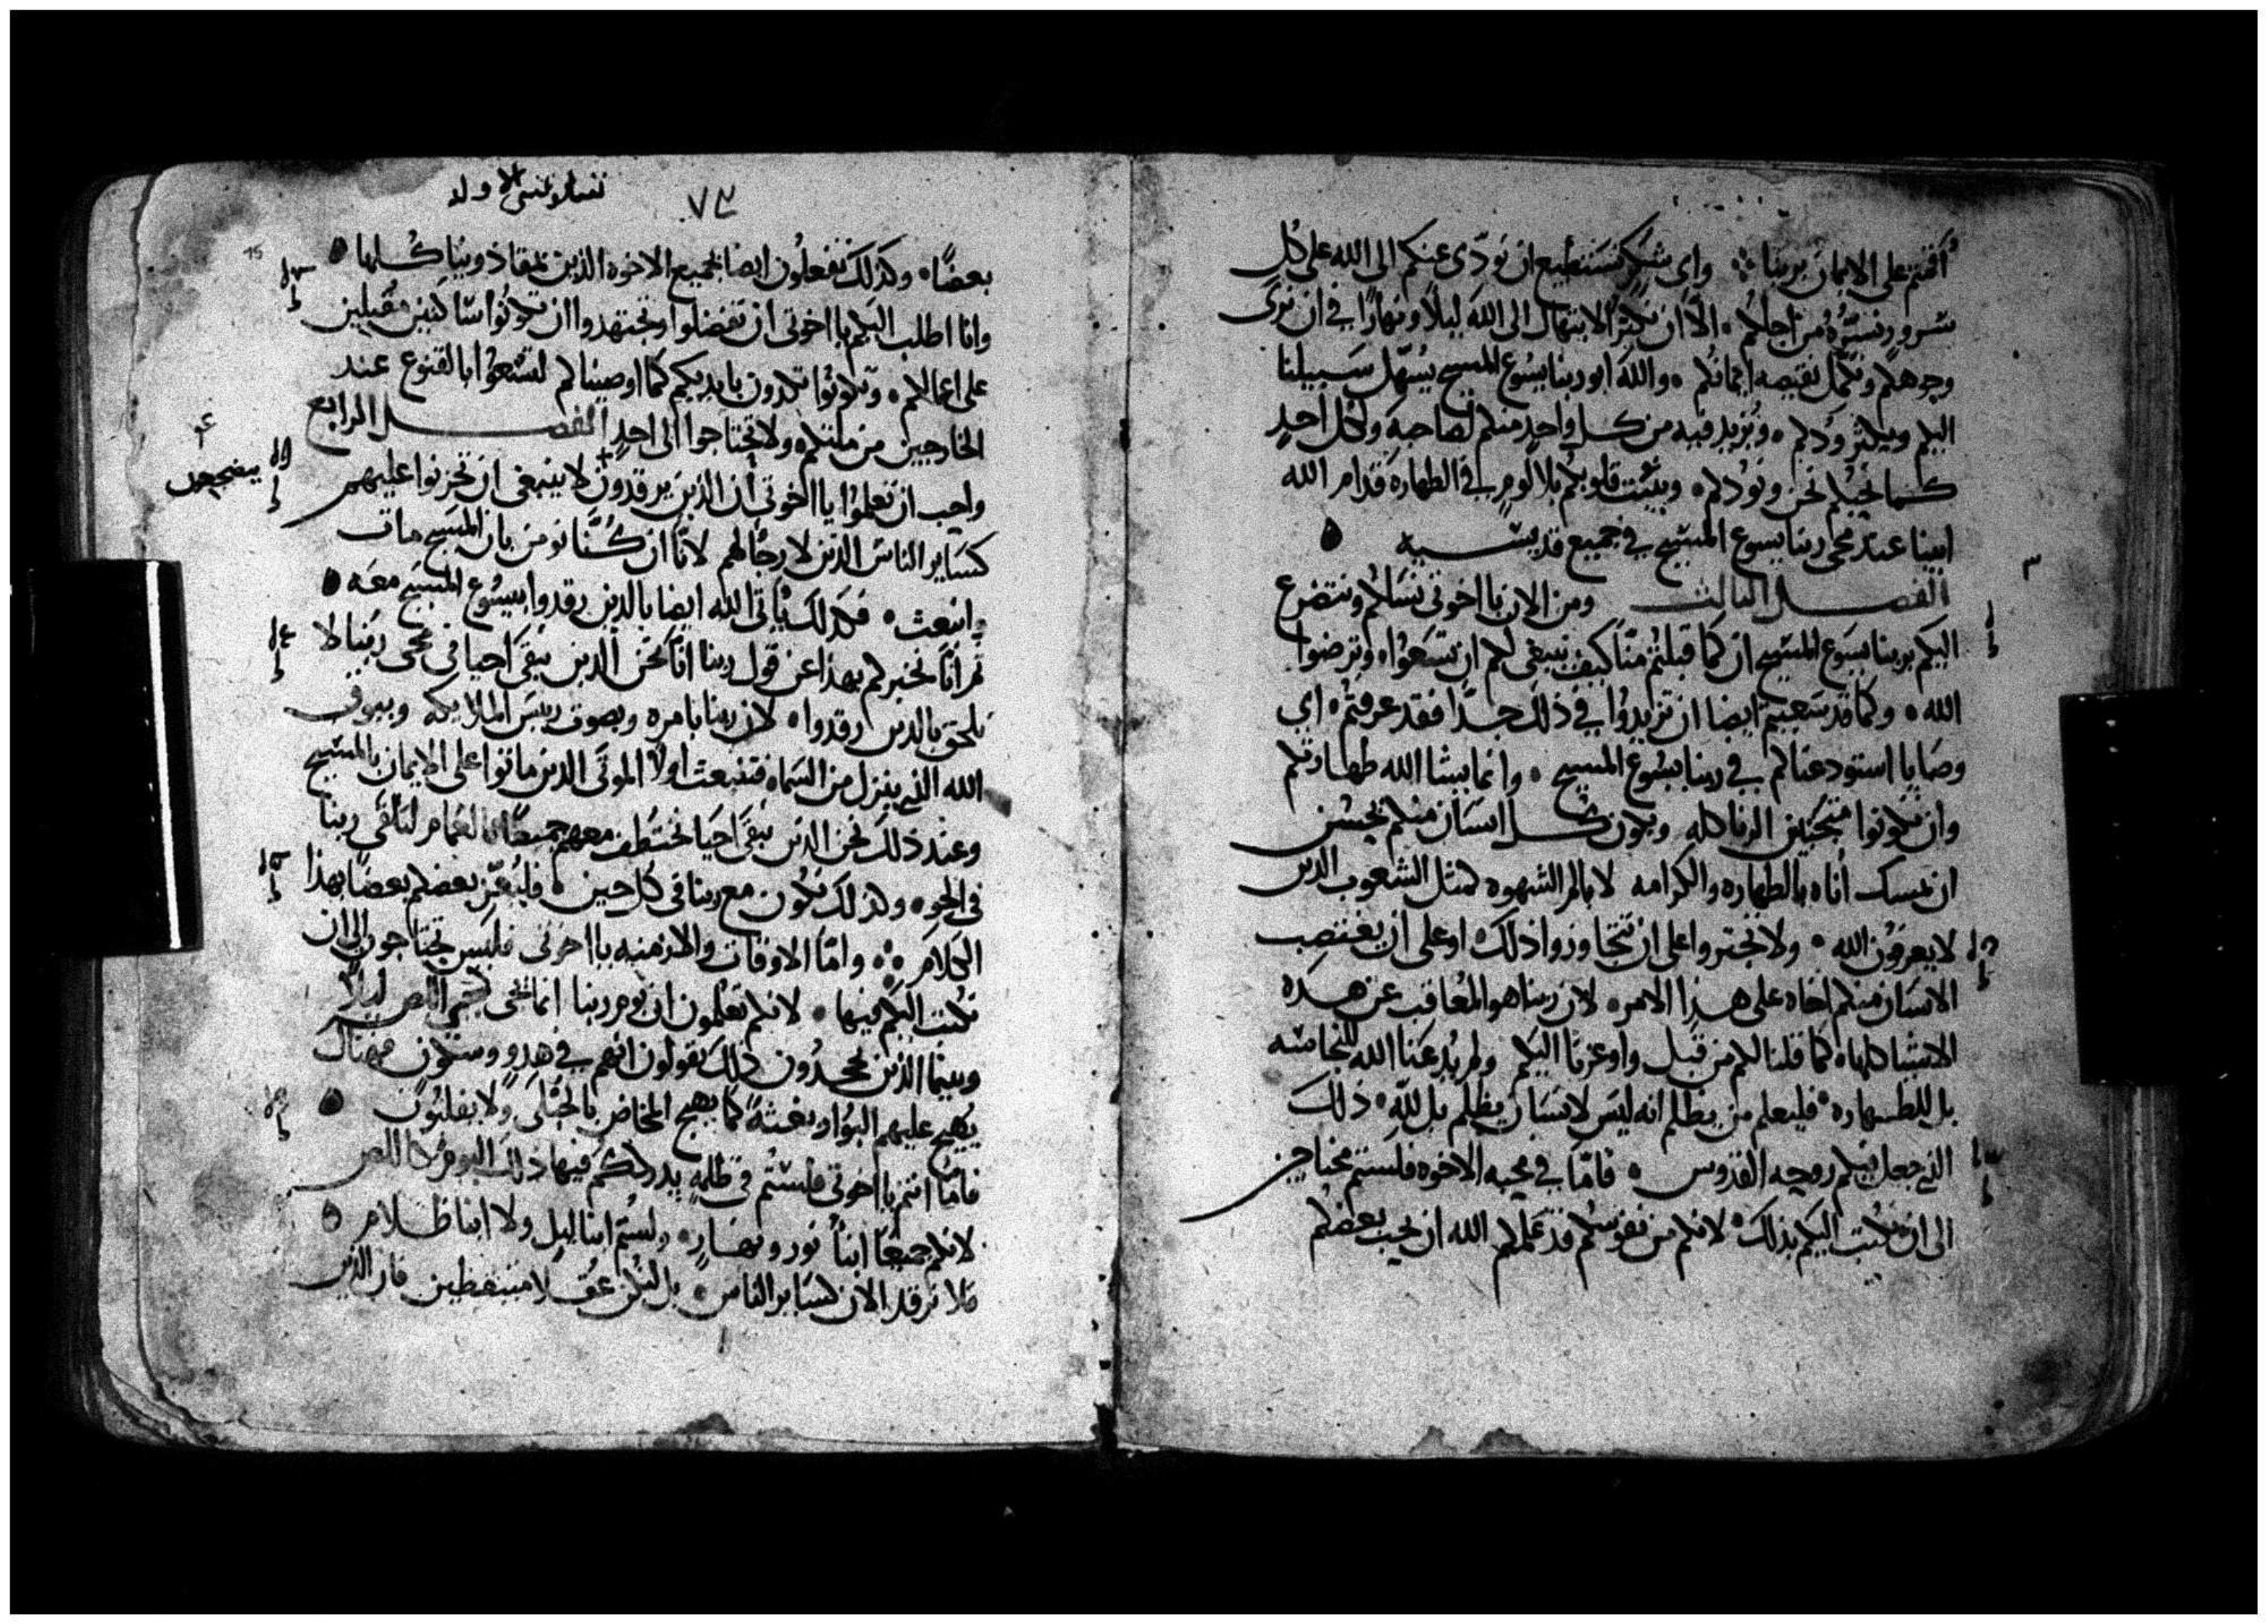 أقمتم على الايمان بربنا ⁘ واي شكر نستطيع ان نودّى عنكم الى الله على كل
سرور نسَرُّه من اجلكم ۰ الّا ان نكثر الابتهال الى الله ليلًا ونهارًا في ان نرى
وجوهكم ونكمّل نقيصه ايمانكم ۰ والله ابو ربنا يسوع المسيح يُسهّل سَبيلنا
اليكم ويكثر ودكم ۰ ويُزيد فيه من كل واحدٍ منكم لصاحبه ولكل احدٍ
كما نحبّكم نحن ونودكم ۰ ويثبّت قلوبكم بلا لومٍ في الطهاره قدام الله
ابينا عند مجى ربنا يسوع المسيح في جميع قديسيه ۰
٣
الفصل الثالث ومن الان يا اخوتى نسَالكم ونتضرع
اليكم بربنا يسوع المسيح ان كما قبلتم منّا كيف ينبغى لكم ان تسَعَوا ۰ وترضوا
الله ۰ وكما قد سَعيتم ايضا ان تزيدوا في ذلك جدًا فقد عرفتم ۰ اي
وصَايا استودعناكم في ربنا يسُوع المسيح ۰ وانما يشا الله طهارتكم
وان تكونوا متجنبين الزنا كله ويكون كل انسَان منكم يحسُن
ان يمسك أناه بالطهاره والكرامه لا بالم الشهوه كمثل الشعوب الذين
لا يعرفون الله ۰ ولا تجتروا على ان تتجاوزوا ذلك ۰ او على ان يغتصِب
الانسَان منكم اخاه على هذا الامر ۰ لان ربنا هو المُعاقب عن هذه
الاشيا كلها ۰ كما قلنا لكم من قبل واوعزنا اليكم ولم يُدعَنا الله للنجاسَه
بل للطهاره ۰ فليعلم من يظلم انه ليسَ لانسَان يظلم بل للّه ۰ ذلك
الذي جعل فيكم روحه القدوس ۰ فامّا في محبه الاخوه فلستم محتاجين
الى ان نكتب اليكم بذلك ۰ لانكم من نفوسكم قد علمكم الله ان يحب بعضكم
تسالونيقي الاوله
٧٣
15
بعضًا ۰ وكذلك تفعلون ايضا بجميع الاخوه الذين بمقاذونيا كلها ۰
وانا اطلب اليكم يا اخوتى ان تفضلوا وتجتهدوا ان تكونوا سَاكنين مُقبلين
على اعمالكم ۰ وتكونوا تكدون بايديكم كما اوصيناكم لتسَعوا بالقنوع عند
الخارجين من ملتكم ۰ ولا تحتاجوا الى احدٍ الفصل الرابع
٤
واجب ان تعلموا يا اخوتى أن الذين يرقدون لا ينبغى ان تحزنوا عليهم
يضجعون
كسَاير الناس الذين لا رجًا لهم لانّا ان كُنّا نومن بان المسَيح مات
وانبعث ۰ فكذلك ياتى الله ايضا بالذين رقدوا بيسُوع المسَيح معَه ۰
ثم انّا نخبركم بهذا عن قول ربنا انّا نحن الذين نبقَى احيا فى مجى ربنا لا
نلحق بالذين رقدوا ۰ لان ربنا بامره وبصوت رييسَ الملايكه وببوق
الله الذي ينزل من السَماء فتنبعث اولًا الموتَى الذين ماتوا على الايمان بالمسَيح
وعند ذلك نحن الذين نبقَى احيَا نختطف معهم جميعًا بالغمام لنتلقى ربنا
فى الجو ۰ وكذلك نكون مع ربنا فى كل حين ۰ فليُعزّ بعضكم بعضًا بهذا
الكلام ⁘ وامّا الاوقات والازمنه يا اخوتى فليسَ تحتاجون الى ان
نكتب اليكم فيها ۰ لانكم تعلمون ان يوم ربنا انما يجى كمجى اللص ليلًا
وبينما الذين يجحدُون ذلك يقولون انهم في هدوٍ وسكون هنالك
يُهيج عليهم البَوار بغتةً كما يهيج المخاض بالحُبلَى ولا يفلتون ۰
فامّا انتم يا اخوتى فلستُم فى ظلمهٍ يدرككم فيها ذلك اليوم كاللص
لانكم جميعًا ابنا نور ونهَارٍ ۰ ولستم ابنا ليلٍ ولا ابنا ظلام ۰
فلا نرقد الان كسَاير الناس ۰ بل لنكن عقلا متيقظين فان الذين